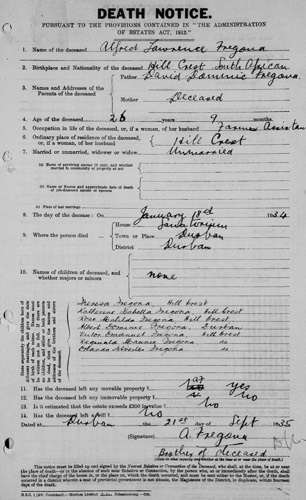 DEATH NOTICE.
PURSUANT TO THE PROVISIONS CONTAINED IN "THE ADMINISTRATION
OF ESTATES ACT, 1913."
1. Name of the deceased Alfred Lawrence Fregona
2. Birthplace and Nationality of the deceased Hill Crest South African
3. Names and Addresses of the Parents of the deceased
Father David Dominic Fregona
Mother Deceased
4. Age of the deceased 26 years 9
5. Occupation in life of the deceased, or, if a woman, of her husband Farmer Assistant
6. Ordinary place of residence of the deceased, or, if a woman, of her husband Hill Crest
7. Married or unmarried, widower or widow Unmarried
(a) Name of surviving spouse (if any), and whether married in community of property or not
(b) Name or Names and approximate date of death of pre-deceased spouse or spouses
(c) Place of last marriage
8. The day of the decease: On January 18th 1934
9. Where the person died
House Sanatorium
Town or Place Durban
District Durban
10. Names of children of deceased, and whether majors or minors
none
Theresa Fregona Hill Crest
Katherine Isabella Fregona, Hill Crest
Rose Matilda Fregona Hill Crest
Albert Dominic Fregona, Durban
Victor Emanuel Fregona Hill Crest
Reginald Fregona do
Orlando Fregona do
11. Has the deceased left any movable property? yes
12. Has the deceased left any immovable property? No
13. Is it estimated that the estate exceeds £300 in value? No
14. Has the deceased left a Will? No
Dated at Durban the 21st day of Sept 1935
(Signature) A. Fregona
Brother of deceased